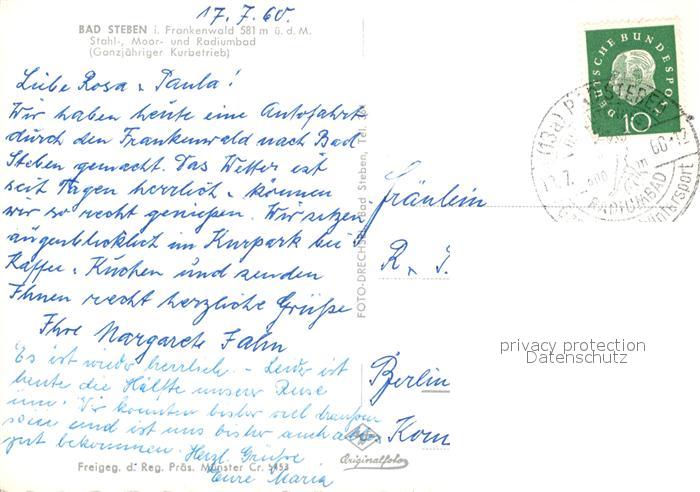 17.7.60.
BAD STEBEN i. Frankenwald 581 m ü. d. M.
Stahl-, Moor- und Radiumbad
(Ganzjähriger Kurbetrieb)
Liebe Rosa u. Paula!
Wir haben heute eine Autofahrt
durch den Frankenwald nach Bad
Steben gemacht. Das Wetter ist
seit Tagen herrlich u. können
wir so recht genießen. Wir sitzen
augenblicklich im Kurpark bei
Kaffee u. Kuchen und senden
Ihnen recht herzliche Grüße
Ihre Margarete Fahn
Es ist wieder herrlich. - Leider ist
heute die Hälfte unserer Reise
um. Wir konnten bisher viel draußen
sein und ist uns bisher auch alles
gut bekommen. Herzl. Grüße
Eure Maria
Freigeg. d. Reg. Präs. Münster Cr. 5453
FOTO-DRECHSEL, Bad Steben, Tel.
Originalfoto
DEUTSCHE BUNDESPOST
10
(13a)
STEBEN
17.7.
60-12
RADIUMBAD
Fräulein
R. J.
Berlin
Kom
privacy protection
Datenschutz